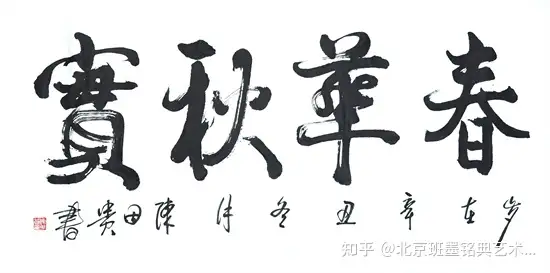 春華秋實
岁在辛丑冬月陳田贵書
知乎 @北京班墨铭典艺术...